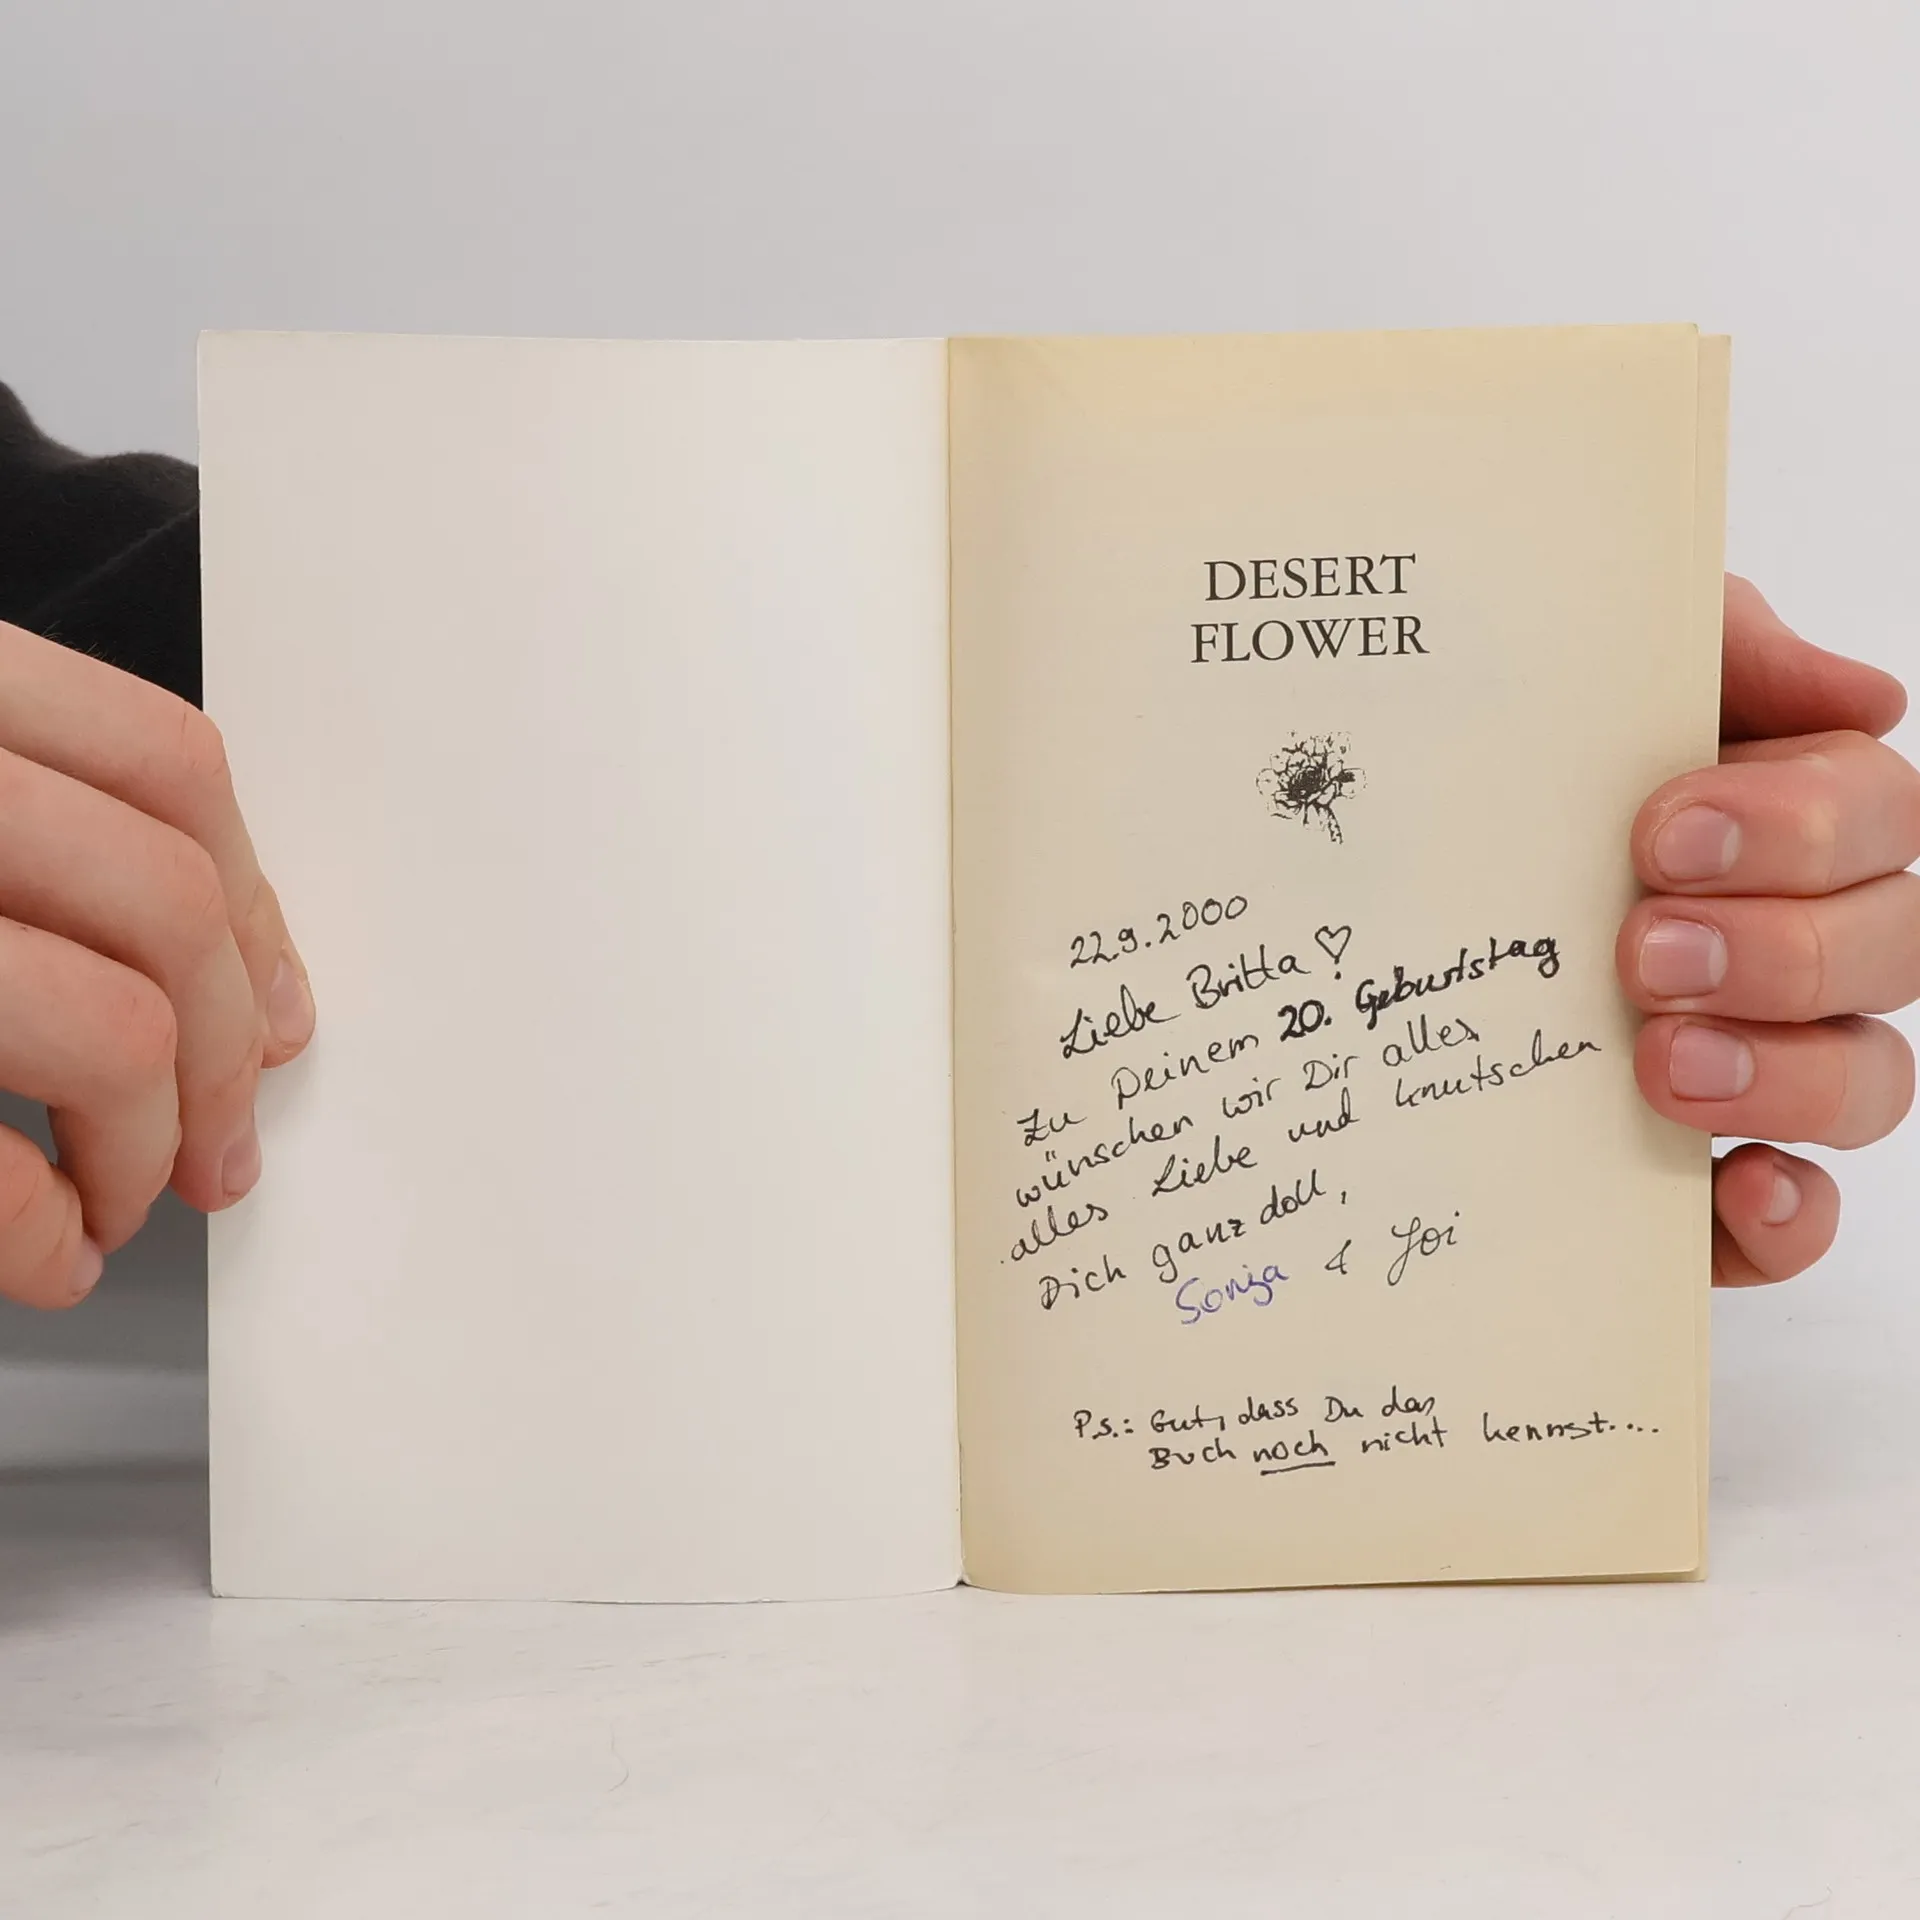 DESERT
FLOWER
22.9.2000
Liebe Britta ♡!
Zu Deinem 20. Geburtstag
wünschen wir Dir alles
alles Liebe und knutschen
Dich ganz doll,
Sonja & Joi
P.s.: Gut, dass Du das
Buch noch nicht kennst....